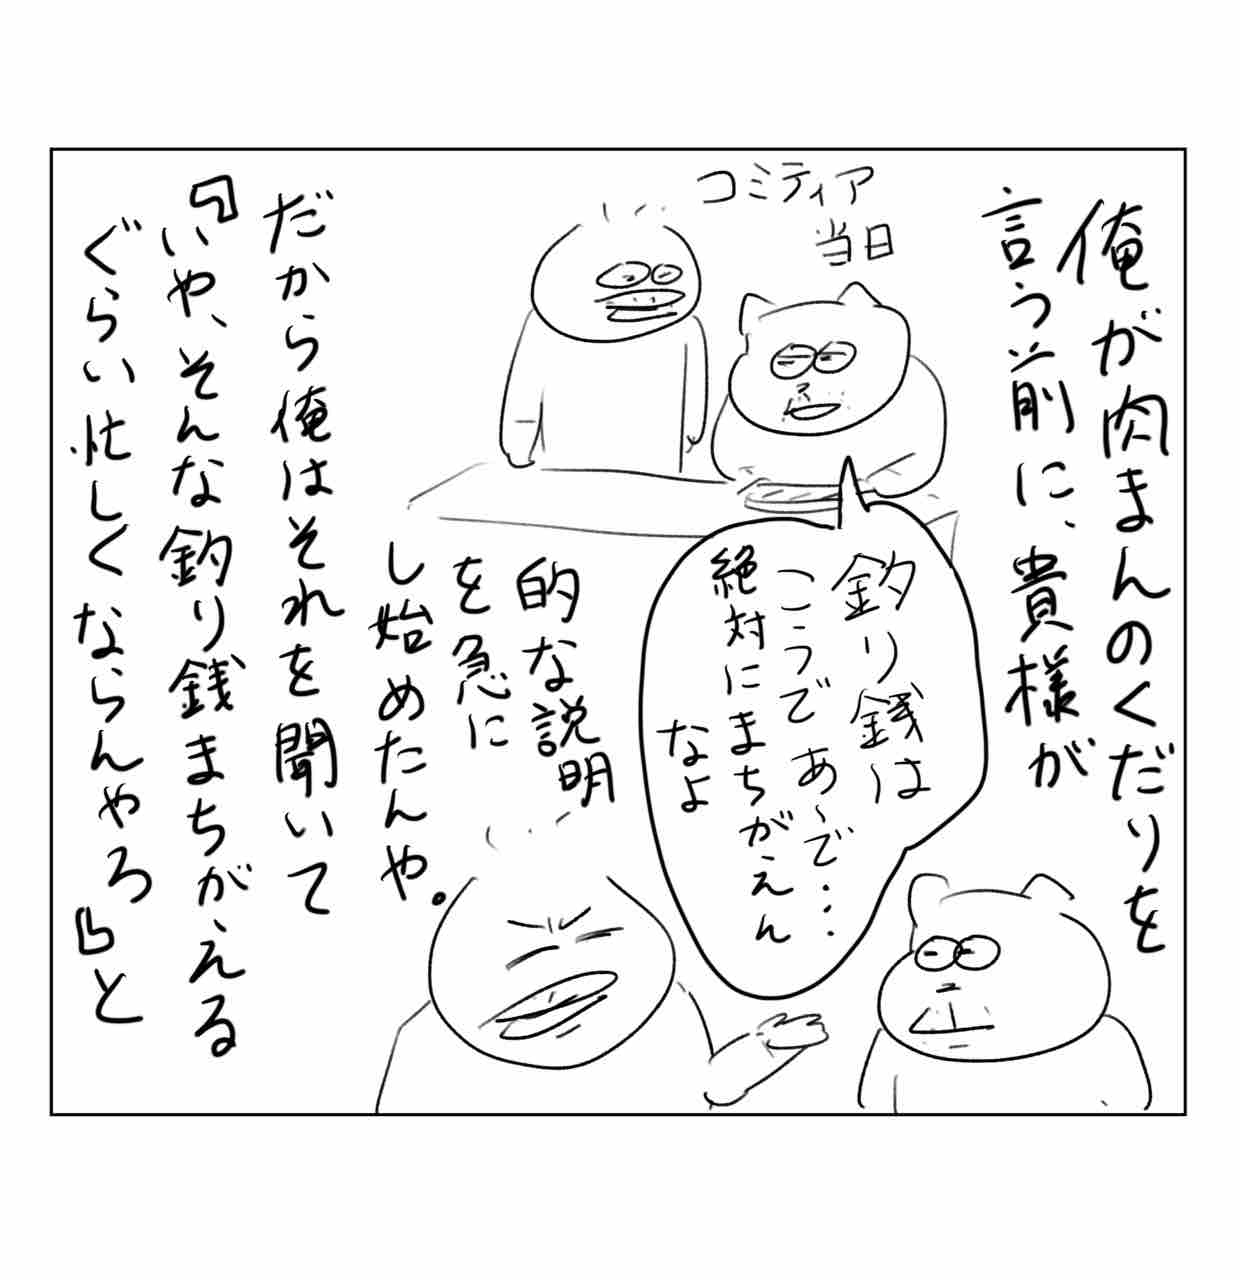 俺が肉まんのくだりを
言う前に、貴様が
コミティア
当日
釣り銭は
こうであーで…
絶対にまちがえん
なよ
的な説明
を急に
し始めたんや。
だから俺はそれを聞いて
『いや、そんな釣り銭まちがえる
ぐらい忙しくならんやろ』と